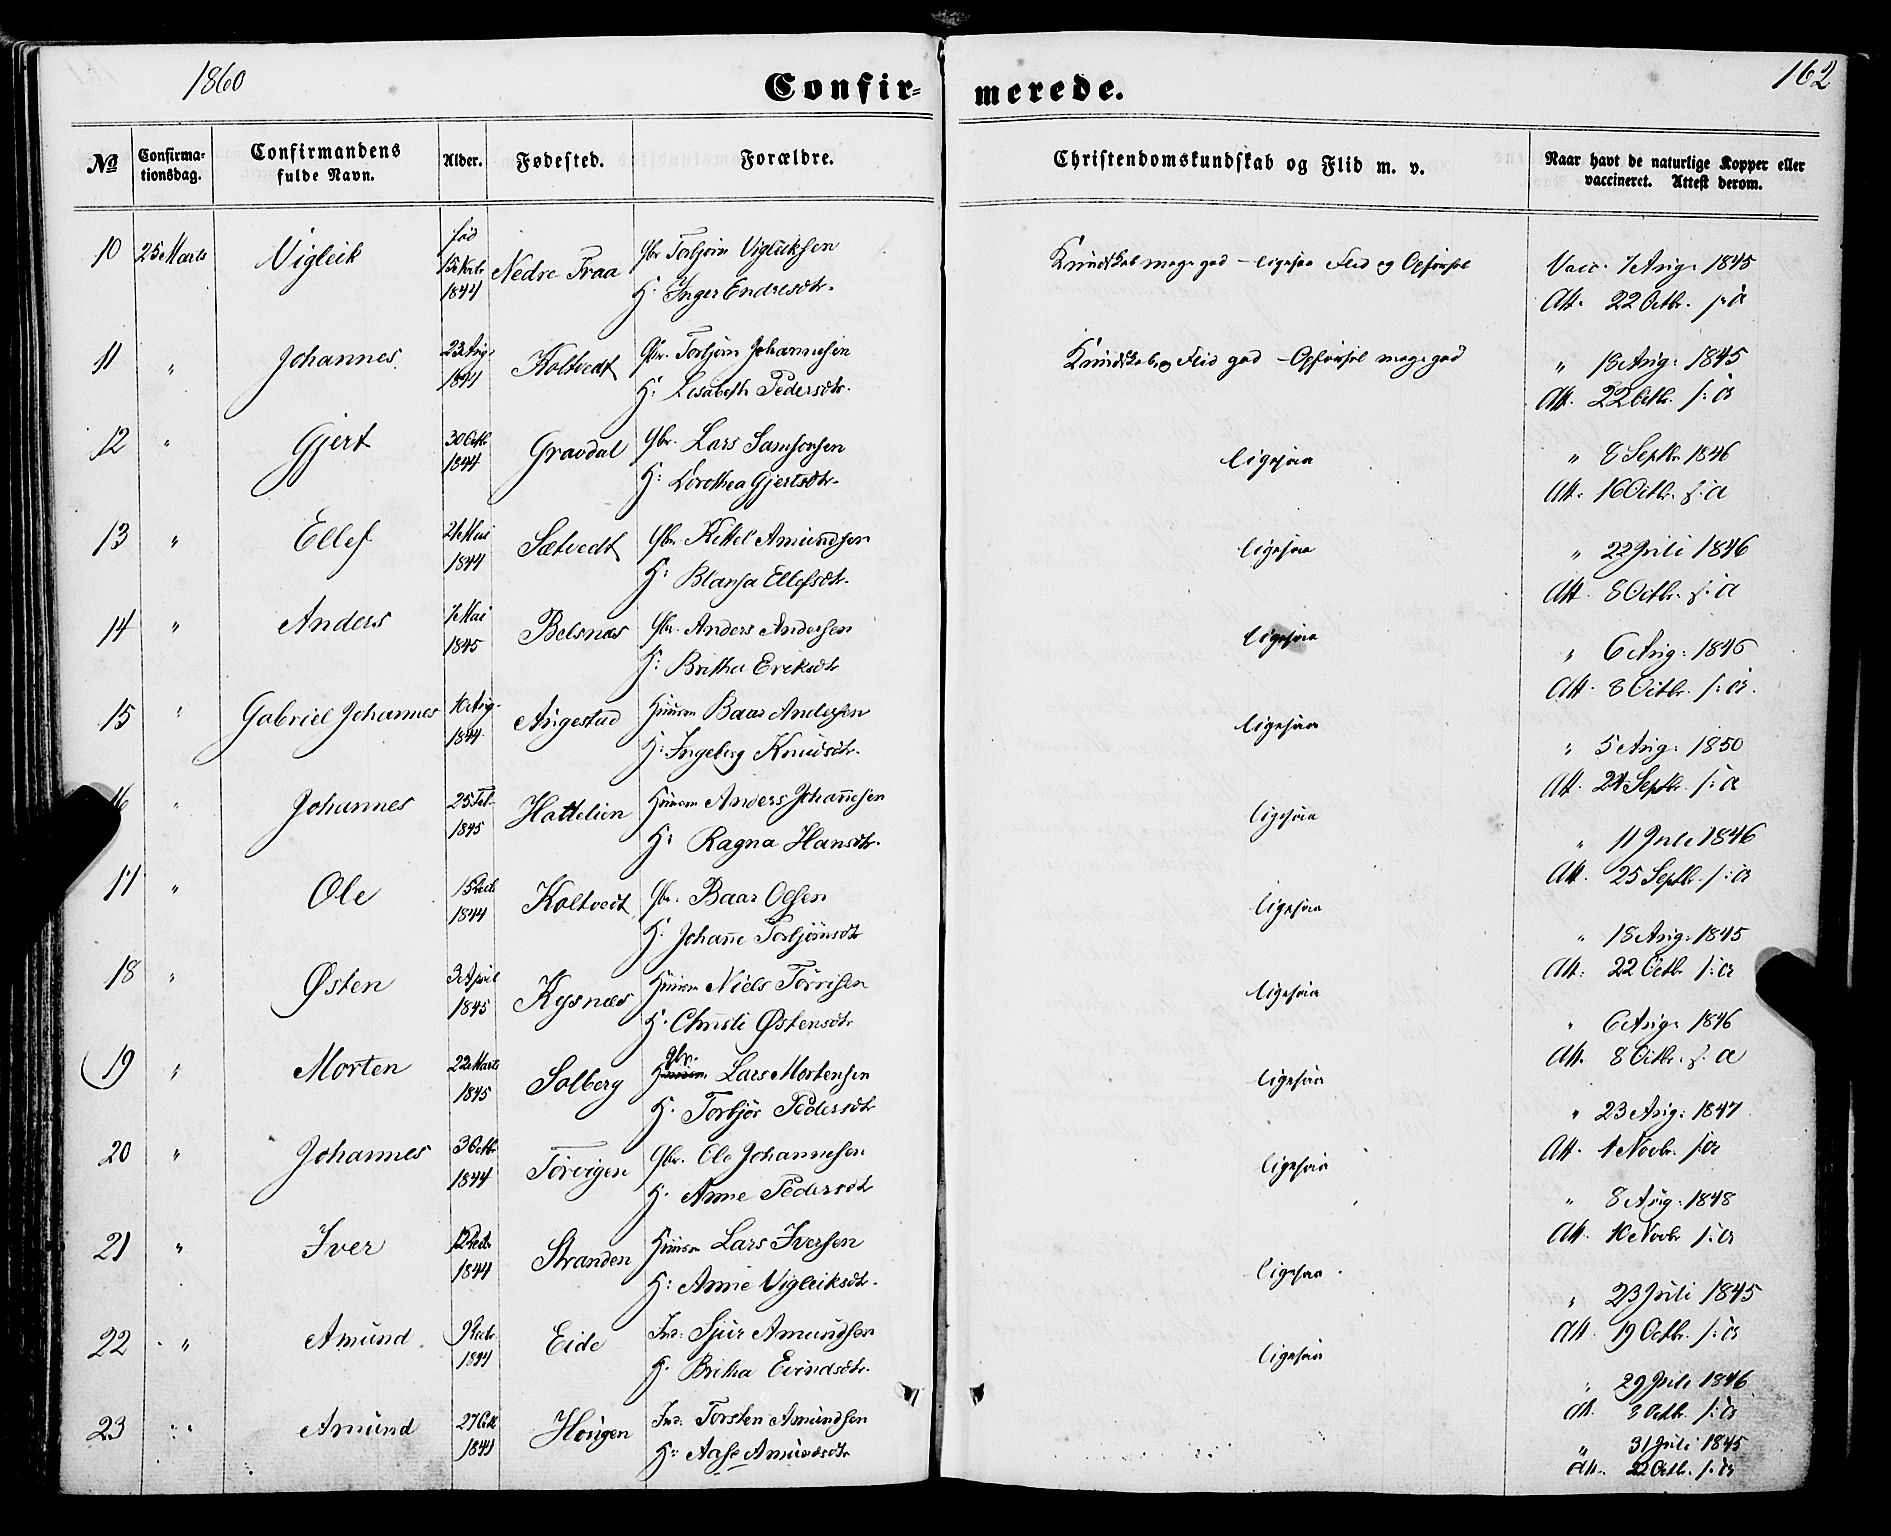 1860
Confirmerede.
162
No
Confirmationsdag.
Confirmandens fulde Navn.
Alder.
Fødested.
Forældre.
Christendomskundskab og Flid m. v.
Naar havt de naturlige Kopper eller vaccineret. Attest derom.
10 25 Marts Vigleik fød 1844 Nedre Traa Gbr Torbjørn Vigleiksen
H: Inger Endresdtr.
Kundskab meget god – ligesaa Flid og Opførsel
Vacc. 7 Aug: 1845
Att. 22 Octbr. s: a
11 " Johannes 23 Aug. 1844 Holtvedt Gbr. Torbjørn Johannesen
H: Lisabeth Pedersdtr.
Kundskab og Flid god – Opførsel meget god
" 18 Aug: 1845
Att. 22 Octbr. s: a
12 " Gjert 30 Octb 1844 Gravdal Gbr. Lars Samsonsen
H: Dorothea Gjertsdtr.
ligesaa
" 8 Septbr 1846
Att. 16 Octbr. s: a
13 " Ellef 1844 Sætvedt Gbr. Kittel Amundsen
H: Ellefsdtr.
ligesaa
" 22 Juli 1846
Att. 8 Octbr. s: a
14 " Anders 7 Mai 1845 Belsnæs Gbr. Anders Andersen
H: Britha Eriksdtr
ligesaa
" 6 Aug: 1846
Att. 8 Octbr. s: a.
15 " Gabriel Johannes 10 Aug. 1844 Augestad Huusm Baar Andersen
H: Ingeborg Knudsdtr.
ligesaa
" 5 Aug: 1850
Att. 24 Septbr. s: a
16 " Johannes 25 Feb. 1845 Hattelien Huusm Anders Johannesen
H: Ragna Hansdtr.
ligesaa
" 11 Juli 1846
Att. 25 Septbr. s: a
17 " Ole 15 1844 Holtvedt Gbr. Baar Olsen
H: Johanne Torbjørnsdtr
ligesaa
" 18 Aug: 1845
Att: 22 Octbr s: a
18 " Østen 3 April 1845 Kysnæs Huusm Niels Tørrisen
H. Christi Østensdtr
ligesaa
" 6 Aug: 1846
Att. 8 Octbr. s. a
19 " Morten 22 Marts 1845 Solberg Gbr. Lars Mortensen
H. Torbjør Pedersdtr
ligesaa
" 23 Aug: 1847
Att. 1 Novbr. s: a
20 " Johannes 3 Octbr 1844 Tørvigen Gbr. Ole Johannesen
H. Anne Pedersdtr
ligesaa
" 8 Aug: 1848
Att. 10 Novbr s: a
21 " Iver 1844 Stranden Huusm Lars Iversen
H: Anne Vigleiksdtr.
ligesaa
" 23 Juli 1845
Att. 19 Octbr. s: a
22 " Amund 1844 Eide Ind: Sjur Amundsen
H. Britha Eivindsdtr.
ligesaa
" 29 Juli 1846
Att. 8 Octbr. s: a
23 " Amund 27 Oct 1844 Hougen Ind: Torsten Amundsen
H: Aase Amundsdtr
" 31 Juli 1845
Att. 22 Octbr. s: a